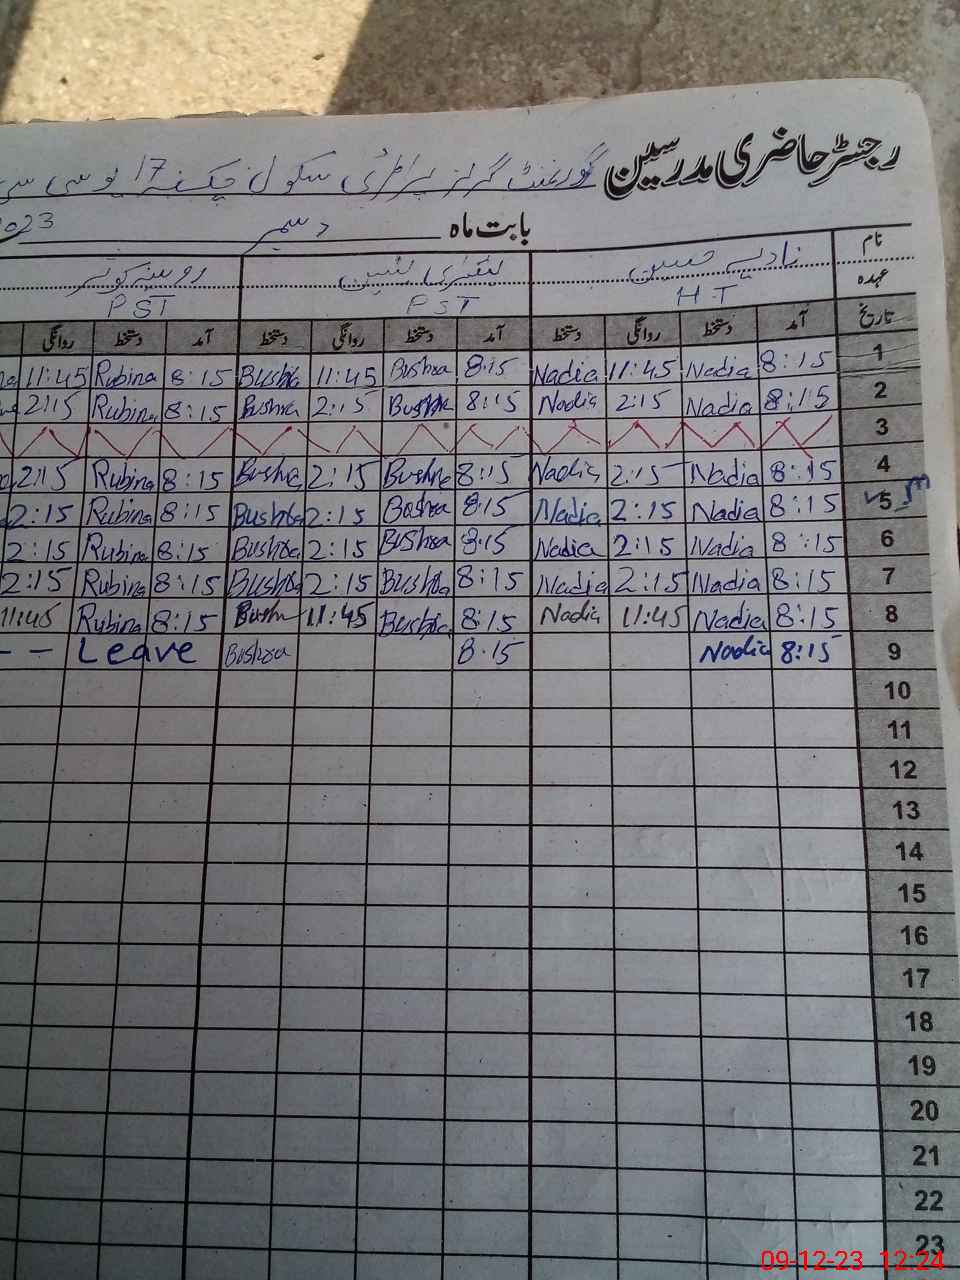 رجسٹر حاضری مدرسین گورنمنٹ گرلز پرائمری سکول چک نمبر 17 یو سی سی
بابت ماہ دسمبر 2023
نام نادیہ حسین بشریٰ روبینہ کوثر
عہدہ H-T PST PST
تاریخ آمد دستخط روانگی دستخط آمد دستخط روانگی دستخط آمد دستخط روانگی
11:45 Rubina 8:15 Bushra 11:45 Bushra 8:15 Nadia 11:45 Nadia 8:15 1
2:15 Rubina 8:15 Bushra 2:15 Bushra 8:15 Nadia 2:15 Nadia 8:15 2
3
2:15 Rubina 8:15 Bushra 2:15 Bushra 8:15 Nadia 2:15 Nadia 8:15 4
2:15 Rubina 8:15 Bushra 2:15 Bushra 8:15 Nadia 2:15 Nadia 8:15 5
2:15 Rubina 8:15 Bushra 2:15 Bushra 8:15 Nadia 2:15 Nadia 8:15 6
2:15 Rubina 8:15 Bushra 2:15 Bushra 8:15 Nadia 2:15 Nadia 8:15 7
11:45 Rubina 8:15 Bushr 11:45 Bushra 8:15 Nadia 11:45 Nadia 8:15 8
-- Leave Bushra 8:15 Nadia 8:15 9
10
11
12
13
14
15
16
17
18
19
20
21
22
23
09-12-23 12:24